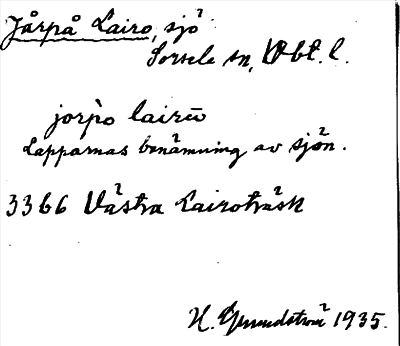 Jårpå Lairo, sjö
Sorsele sn, Vbt. l.
jorpò lairū
Lapparnas benämning av sjön.
3366 Västra Lairoträsk
H. Grundström 1935.